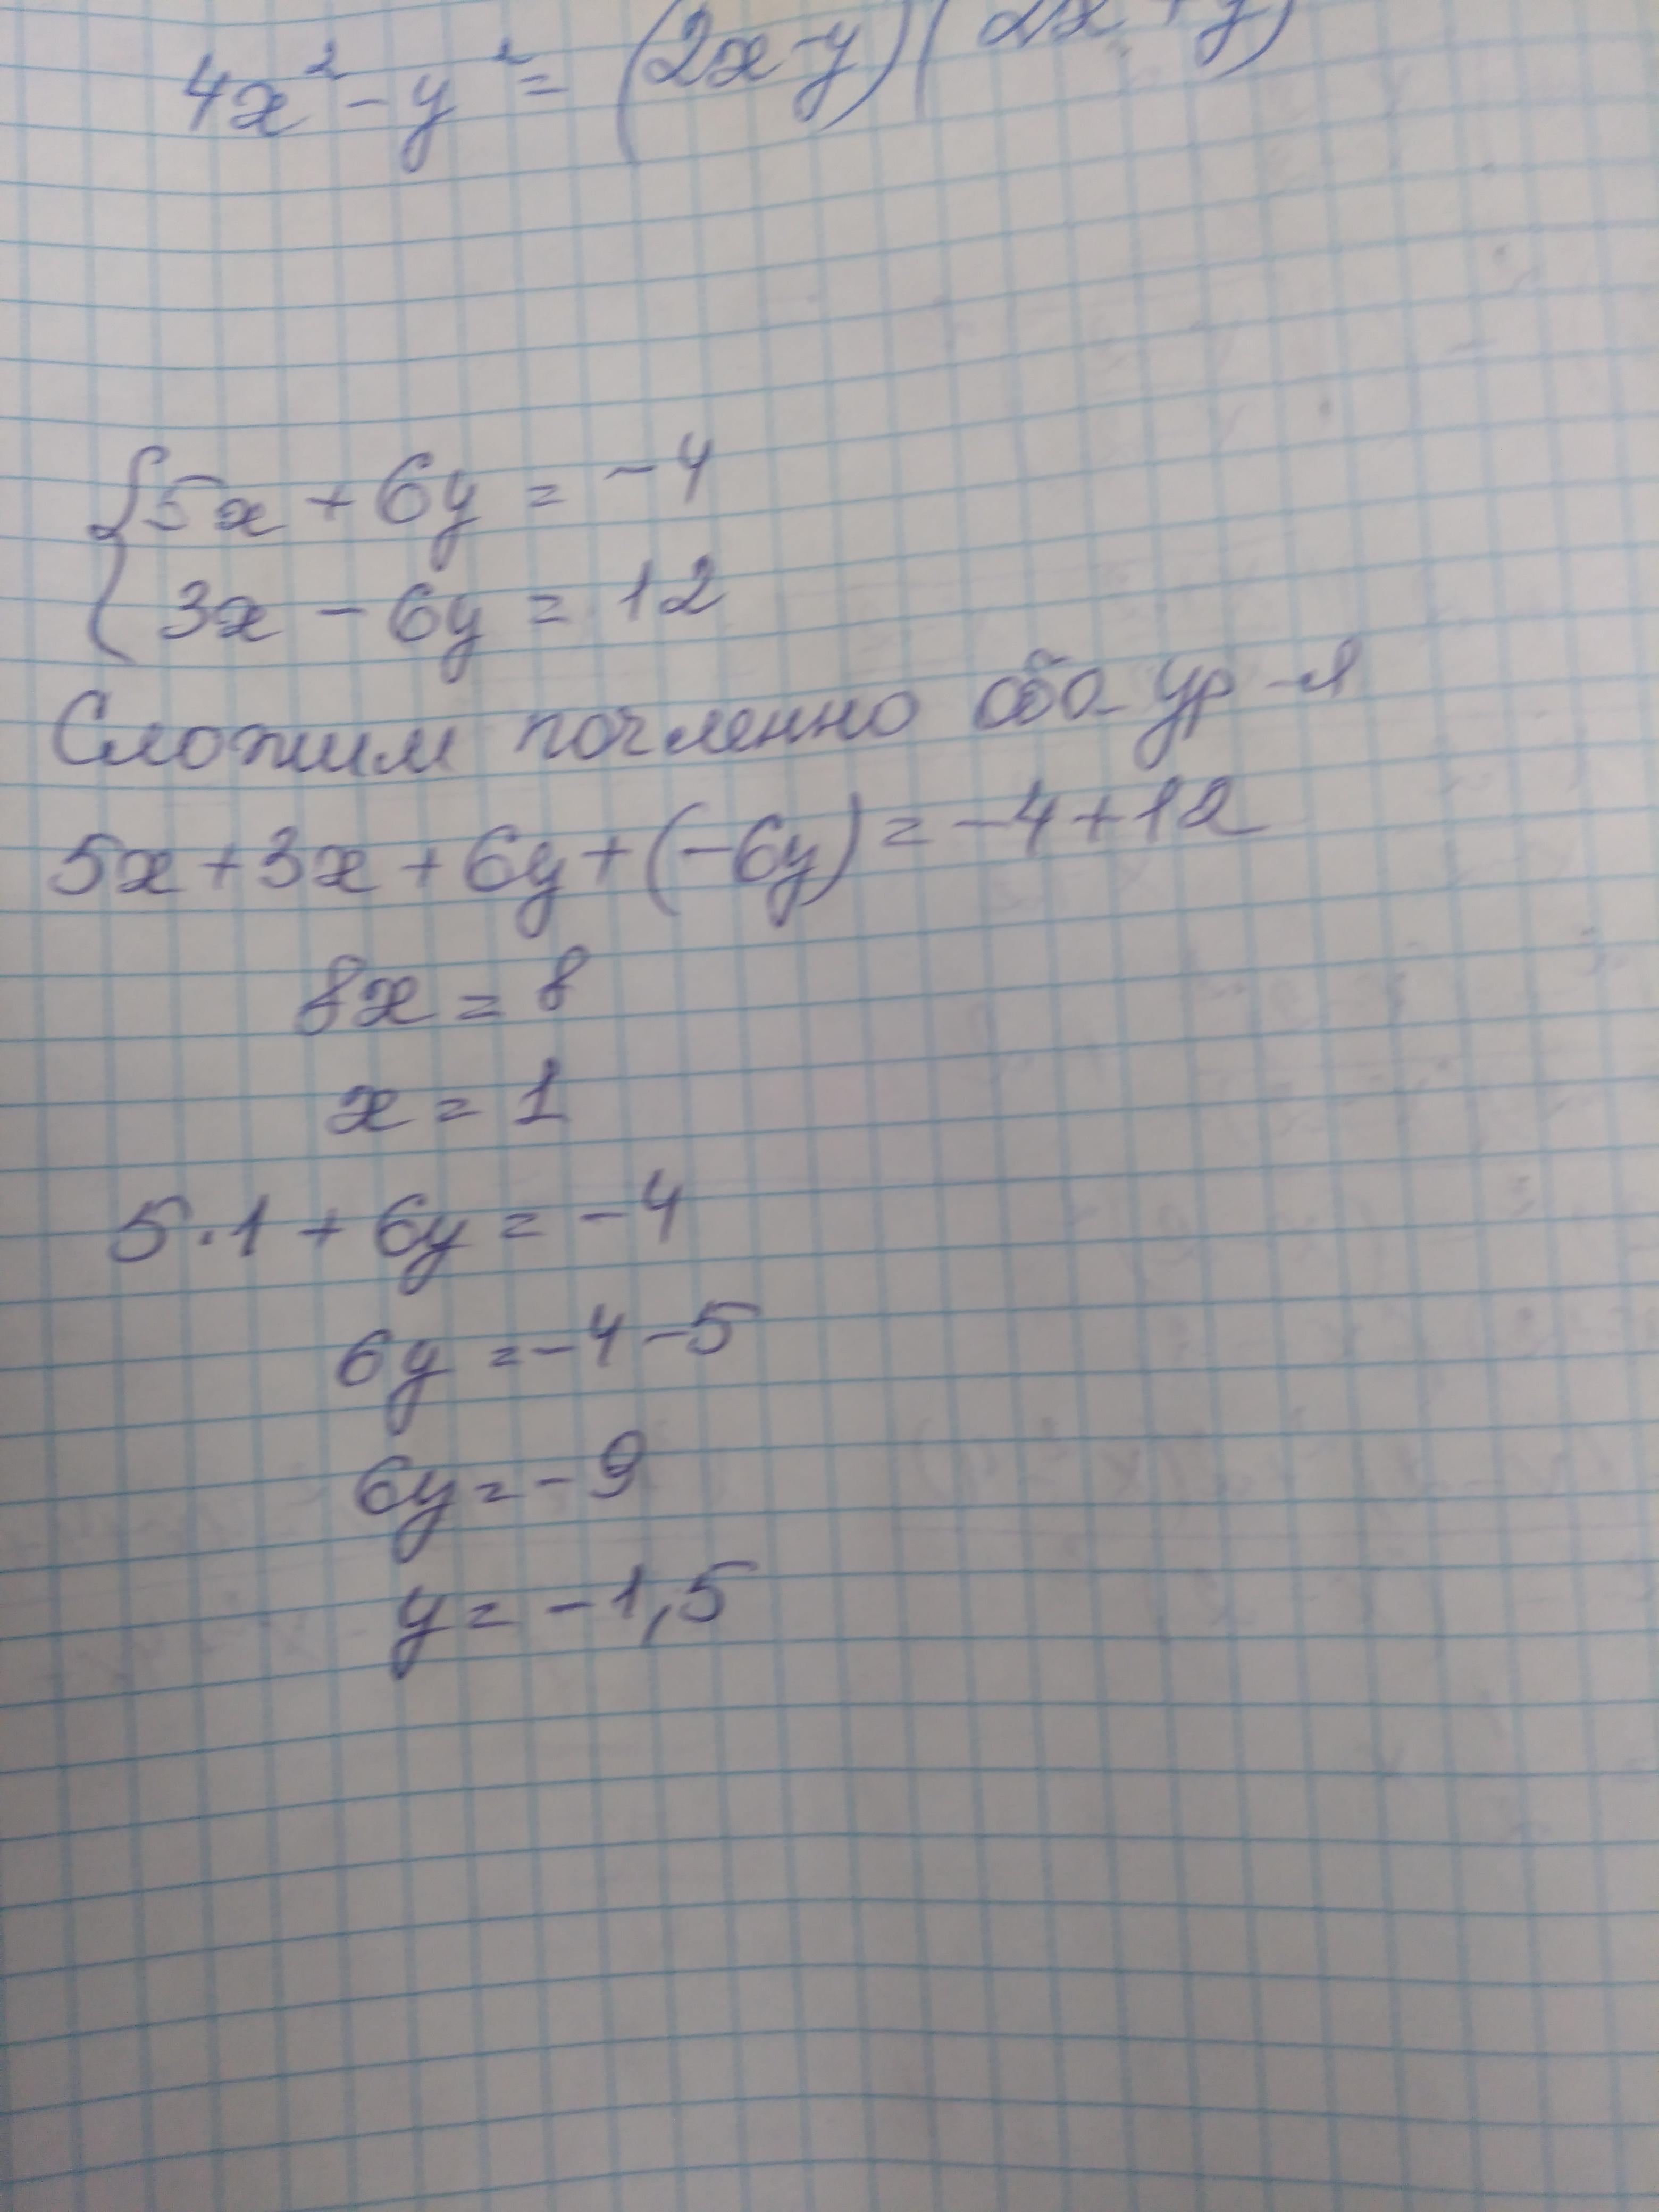 4x² - y² = (2x-y)(2x+y)
{5x + 6y = -4
3x - 6y = 12
Сложим почленно оба ур-я
5x+3x+6y+(-6y)=-4+12
8x = 8
x = 1
5·1 + 6y = -4
6y = -4-5
6y = -9
y = -1,5